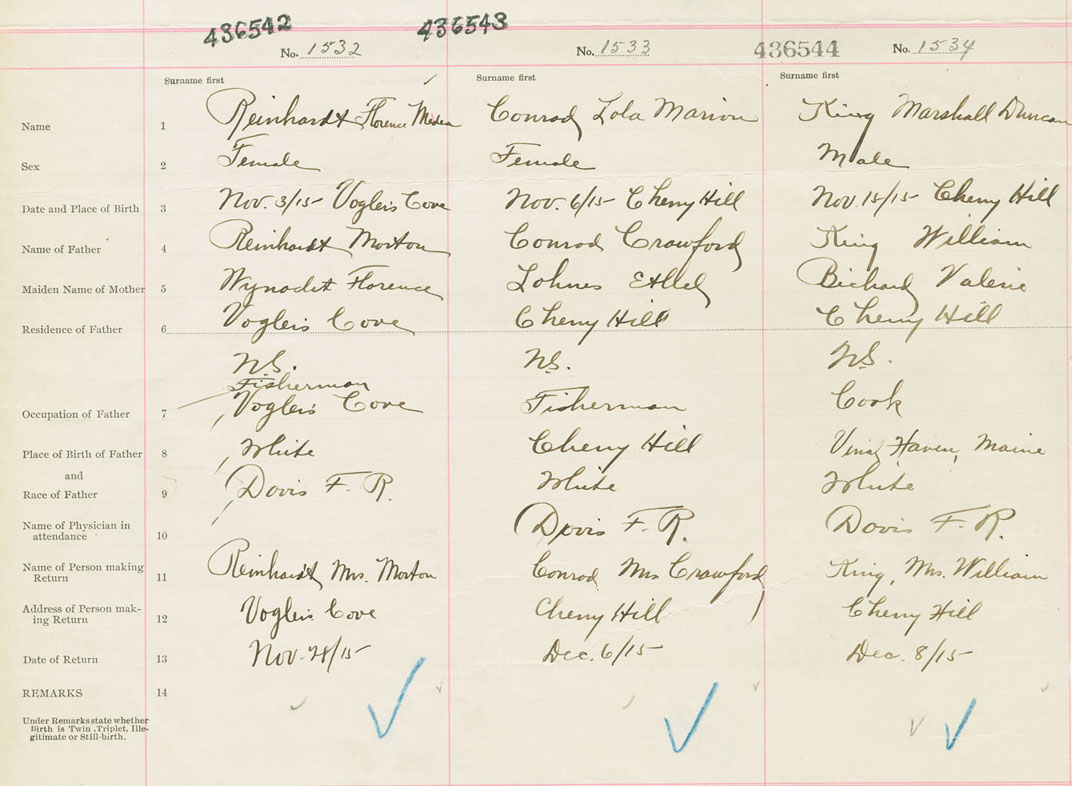 436542 436543
No. 1532 No. 1533 436544 No. 1534
Surname first Surname first Surname first
Name 1 Reinhardt Florence Conrad Lola Marion King Marshall Duncan
Sex 2 Female Female Male
Date and Place of Birth 3 Nov. 3/15 Voglers Cove Nov. 6/15 Cherry Hill Nov. 15/15 Cherry Hill
Name of Father 4 Reinhardt Morton Conrad Crawford King William
Maiden Name of Mother 5 Florence Lohnes Ethel Valerie
Residence of Father 6 Voglers Cove Cherry Hill Cherry Hill
N.S. N.S. N.S.
Fisherman
Occupation of Father 7 Voglers Cove Fisherman Cook
Place of Birth of Father 8 White Cherry Hill Vinal Haven, Maine
and
Race of Father 9 Davis F. R. White White
Name of Physician in
attendance 10 Davis F. R. Davis F. R.
Name of Person making
Return 11 Reinhardt Mrs. Morton Conrad Mrs Crawford King, Mrs. William
Address of Person mak-
ing Return 12 Voglers Cove Cherry Hill Cherry Hill
Date of Return 13 Nov. 28/15 Dec. 6/15 Dec. 8/15
REMARKS 14
Under Remarks state whether
Birth is Twin, Triplet, Ille-
gitimate or Still-birth.